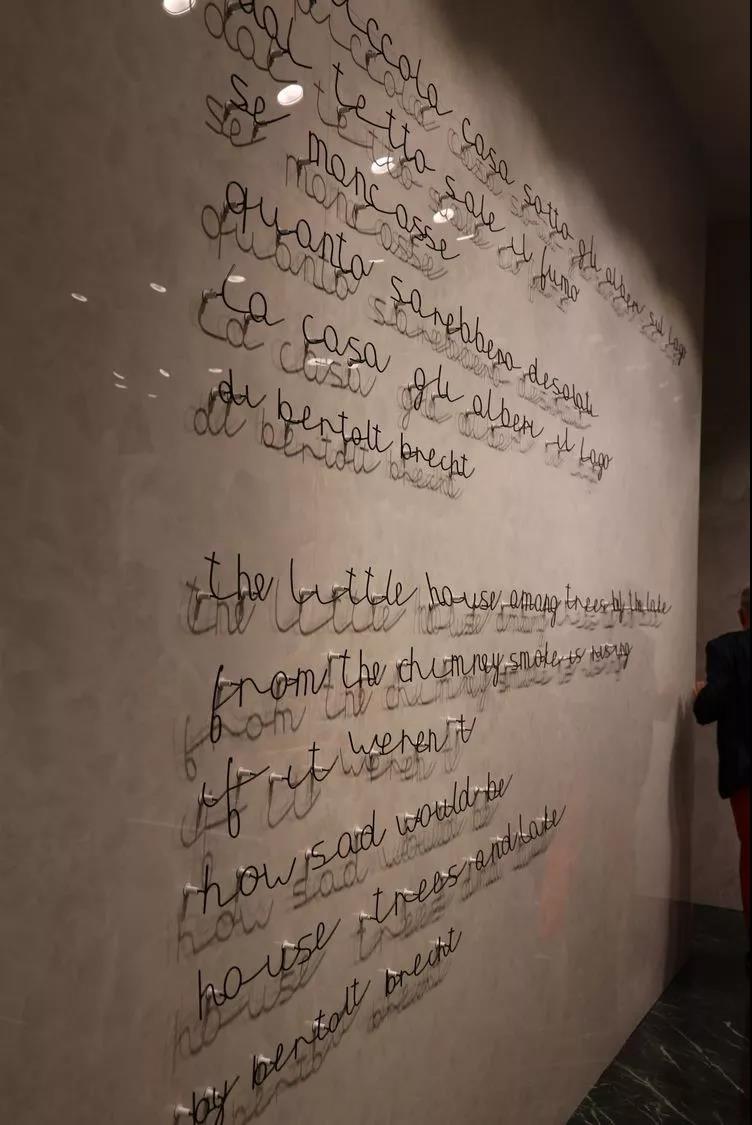 piccola casa sotto gli alberi sul lago
dal tetto sale il fumo
se mancasse
quanto sarebbero desolati
la casa gli alberi il lago
di bertolt brecht
the little house among trees by the lake
from the chimney smoke is rising
if it weren't
how sad would be
house trees and lake
by bertolt brecht